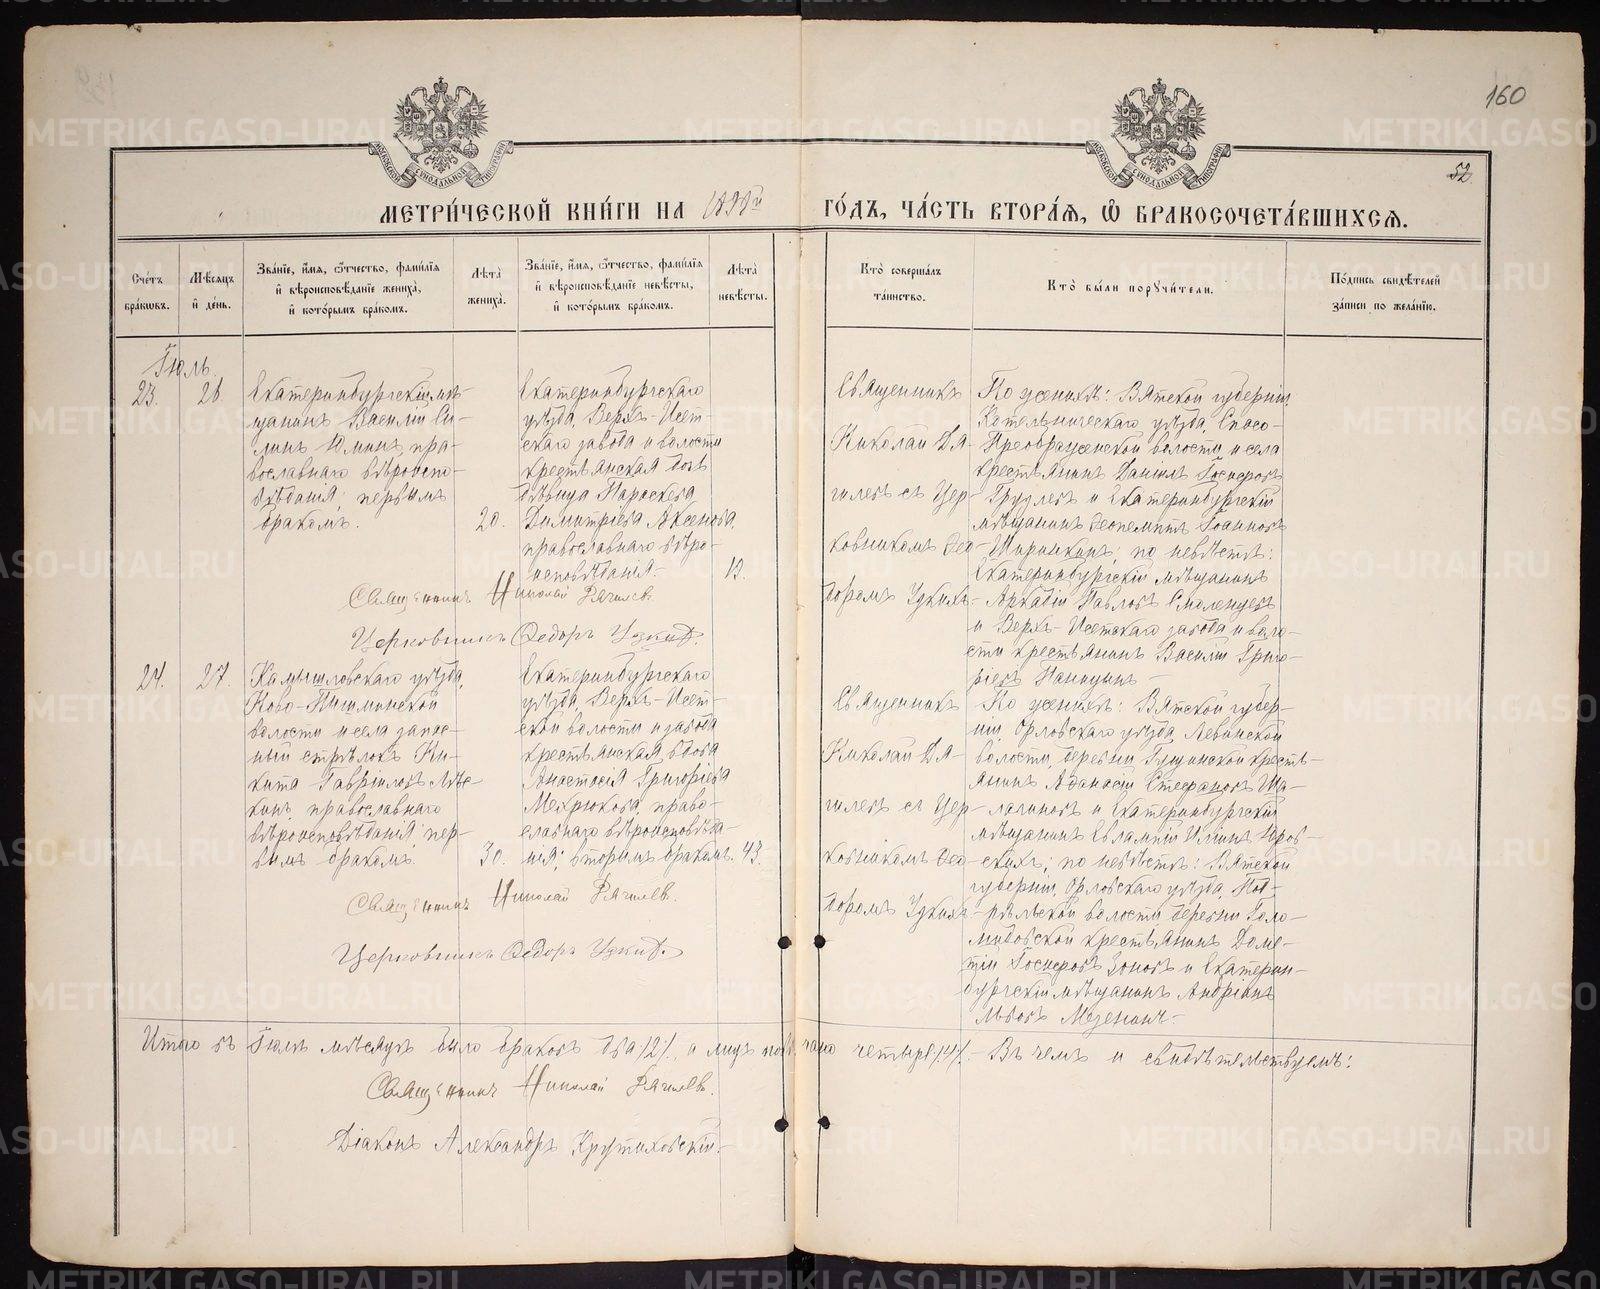 160
52.
МЕТРИ́ЧЕСКОЙ КНИ́ГИ НА
ГО́ДЪ, ЧА́СТЬ ВТОРА́Ѧ, Ѽ БРАКОСОЧЕТА́ВШИХСѦ.
Сче́тъ бра́кѡвъ.
Мѣ́сѧцъ и҆ де́нь.
Зва́нїе, и҆́мѧ, ѻ҆́тчество, фами́лїѧ
и҆ вѣроисповѣ́данїе жениха̀,
и҆ кото́рымъ бра́комъ.
Лѣта̀ жениха̀.
Зва́нїе, и҆́мѧ, ѻ҆́тчество, фами́лїѧ
и҆ вѣроисповѣ́данїе невѣ́сты,
и҆ кото́рымъ бра́комъ.
Лѣта̀ невѣ́сты.
Кто̀ соверша́лъ
та́инство.
Кто̀ бы́ли порꙋчи́тели.
По́дпись свидѣ́телей
за́писи по жела́нїю.
Іюль.
23.
26.
Екатеринбургскій мѣ-
щанинъ Василій Си-
линъ Юминъ, пра-
вославнаго вѣроиспо-
вѣданія; первымъ
бракомъ.
20.
Екатеринбургскаго
уѣзда, Верхъ-Исет-
скаго завода и волости
крестьянская дочь
дѣвица Параскева
Димитріева Аксенова,
православнаго вѣро-
исповѣданія.
Священникъ
Николай Дя-
гилевъ съ цер-
ковникомъ Ѳео-
доромъ Удкихъ
По женихѣ: Вятской губерніи,
Котельническаго уѣзда, Спасо-
Преображенской волости и села
крестьянинъ Даніилъ Іосифовъ
и Екатеринбургскій
мѣщанинъ Ѳеопемптъ Іоанновъ
Ширинкинъ; по невѣстѣ:
Екатеринбургскій мѣщанинъ
Аркадій Павловъ Смоленцевъ
и Верхъ-Исетскаго завода и воло-
сти крестьянинъ Василій Григо-
ріевъ
Священникъ Николай Дягилевъ.
Церковникъ Ѳедоръ
24.
27.
Камышловскаго уѣзда,
Ново-Пышминской
волости и села запас-
ный стрѣлокъ Ни-
кита Гавріиловъ
православнаго
вѣроисповѣданія; пер-
вымъ бракомъ.
30.
Екатеринбургскаго
уѣзда, Верхъ-Исет-
ской волости и завода
крестьянская вдова
Анастасія Григоріева
Мехрюкова, право-
славнаго вѣроисповѣда-
нія; вторымъ бракомъ.
43.
Священникъ
Николай Дя-
гилевъ съ цер-
ковникомъ Ѳео-
доромъ Удкихъ
По женихѣ: Вятской губер-
ніи, Орловскаго уѣзда, Леванской
волости, деревни Гущинской кресть-
янинъ Аѳанасій Стефановъ Ша-
лагиновъ и Екатеринбургскій
мѣщанинъ Евлампій Ильинъ
по невѣстѣ: Вятской
губерніи, Орловскаго уѣзда, Под-
рѣльской волости деревни
крестьянинъ Доме-
тій Іосифовъ Зоновъ и Екатерин-
бургскій мѣщанинъ Андріанъ
Львовъ Мезенинъ.
Священникъ Николай Дягилевъ.
Церковникъ Ѳедоръ
Итого въ Іюлѣ мѣсяцѣ было браковъ два /2/, а лицъ четыре /4/. Въ чемъ и свидѣтельствуемъ:
Священникъ Николай Дягилевъ.
Діаконъ Александръ Крутиховскій.